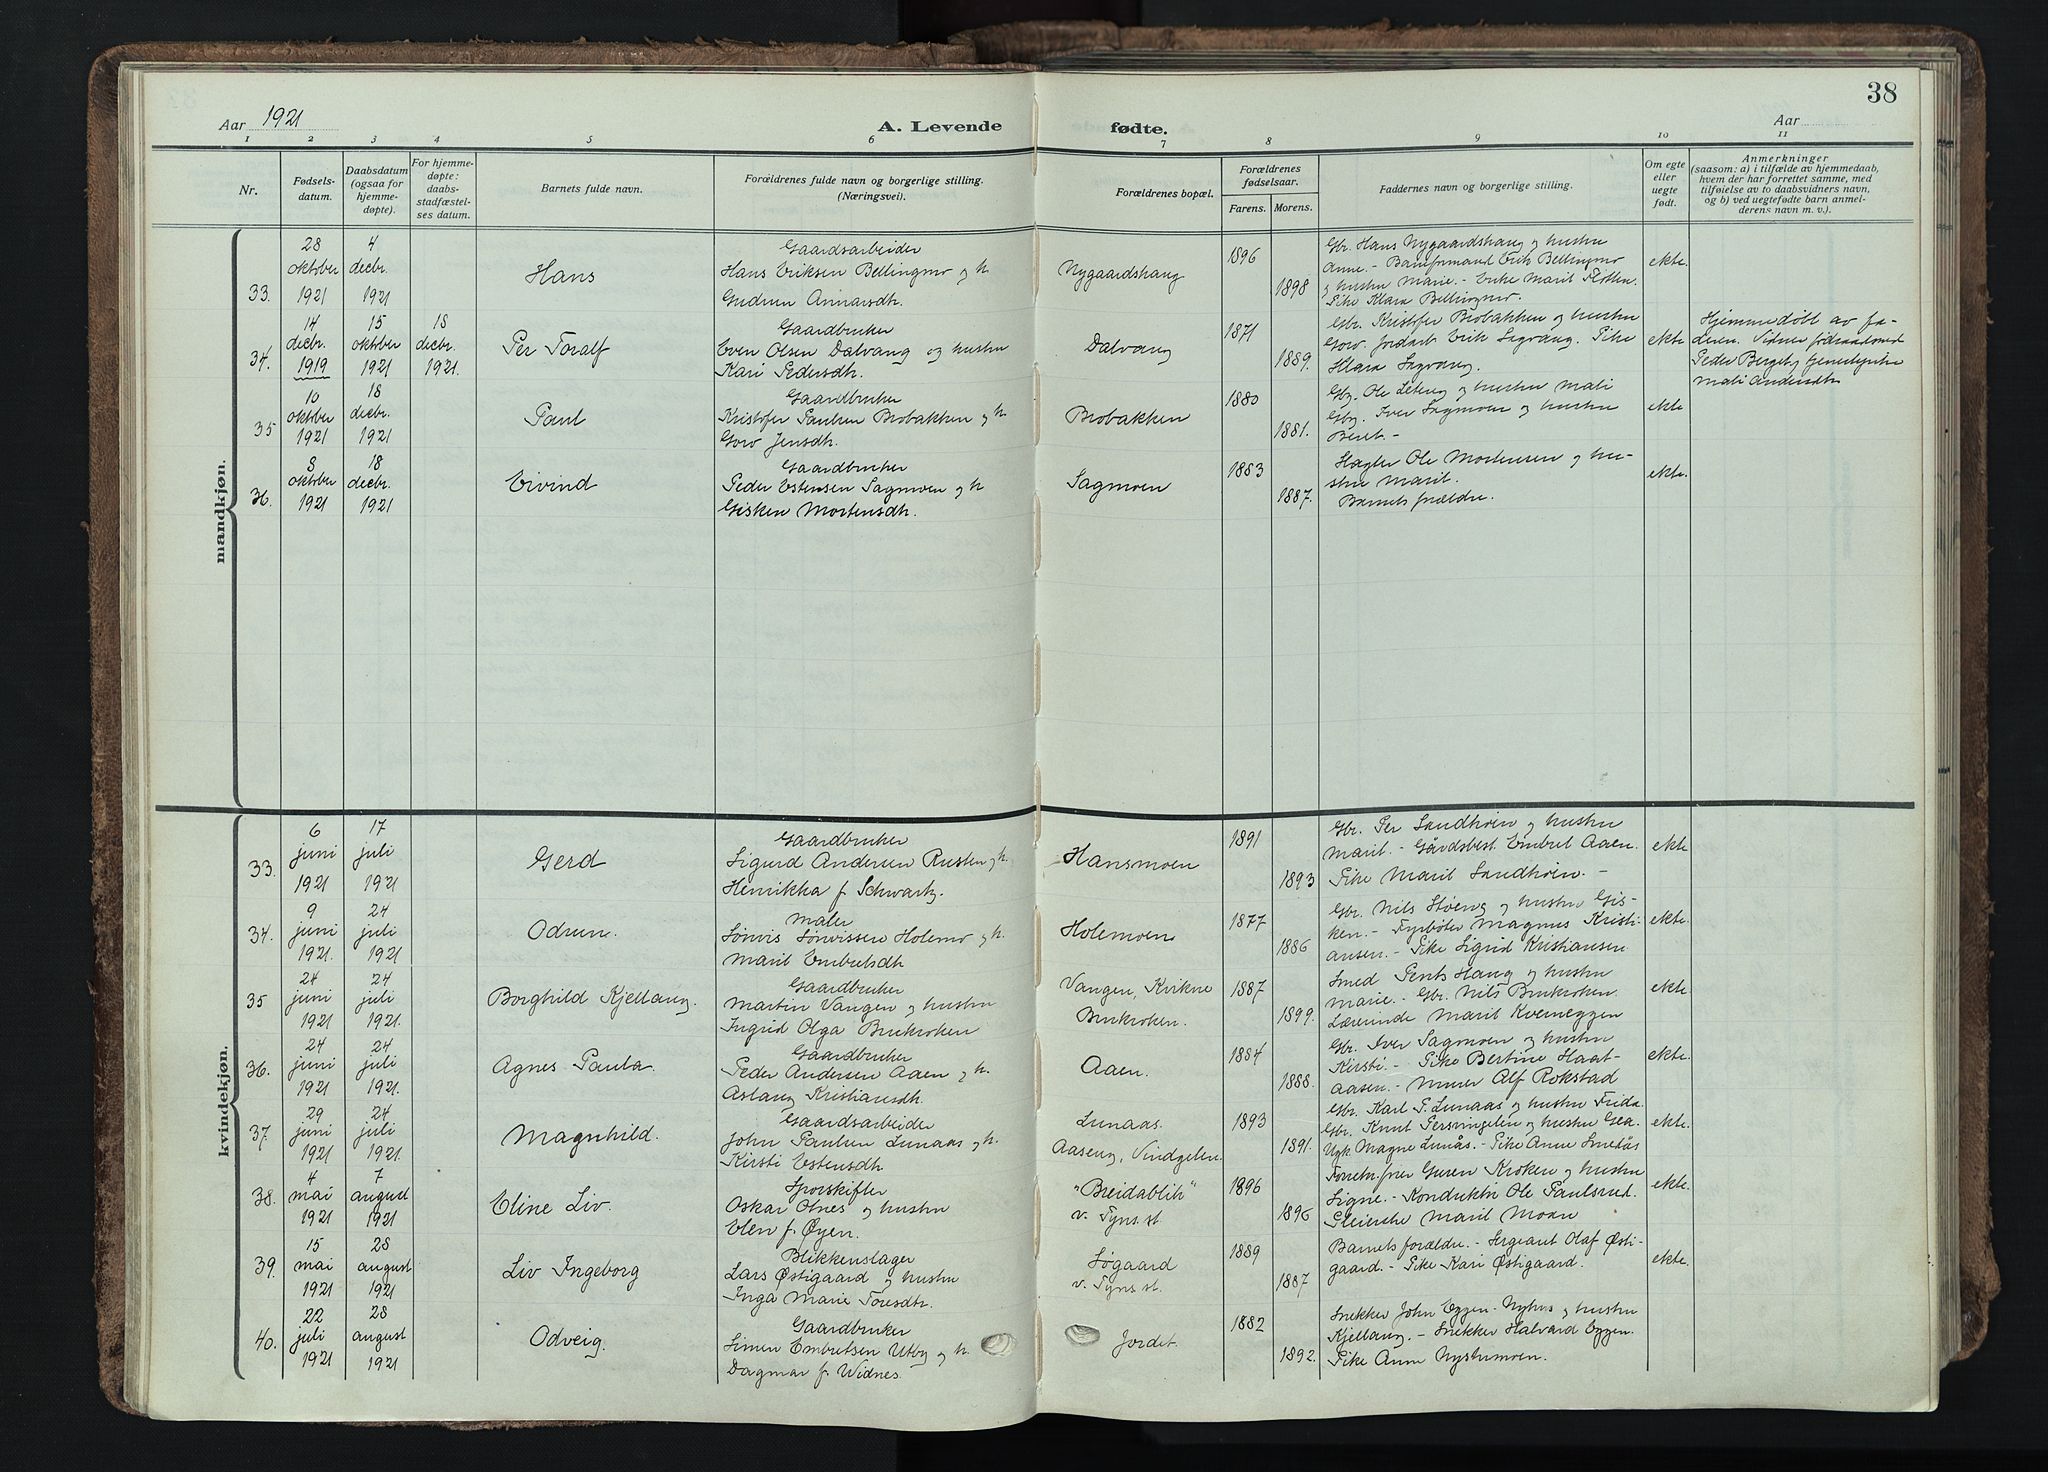 38
Aar 1921
A. Levende
fødte.
Aar
1 2 3 4 5 6 7 8 9 10 11
Nr.
Fødsels-
datum.
Daabsdatum
(ogsaa for
hjemme-
døpte).
For hjemme-
døpte:
daabs-
stadfæstel-
ses datum.
Barnets fulde navn.
Forældrenes fulde navn og borgerlige stilling.
(Næringsvei).
Forældrenes bopæl.
Forældrenes
fødselsaar.
Farens. Morens.
Faddernes navn og borgerlige stilling.
Om egte
eller
uegte
født.
Anmerkninger
(saasom: a) i tilfælde av hjemmedaab,
hvem der har forrettet samme, med
tilføielse av to daabsvidners navn,
og b) ved uegtefødte barn anmel-
derens navn m. v.).
mandkjøn.
33.
28
oktober
1921
4
decbr.
1921
Hans
Gaardsarbeider
Hans Eriksen Bellingmo og h.
Gudrun Annarsdtr.
Nygaardshaug
1896
1898
Gbr. Hans Nygaardshaug og hustru
Anne. - Erik Bellingmo
og hustru Marie. - Enke Marit
Pike Klara Bellingmo.
ekte.
34.
14
decbr.
1919
15
oktober
1921
18
decbr.
1921.
Per Toralf
Gaardbruker
Even Olsen Dalvang og hustru
Kari Pedersdtr.
Dalvang
1871
1889.
Gbr. Kristofer Brobakken og hustru
Goro. Jordarb. Erik Segvang. Pike
Klara Segvang.
ekte
Hjemmedøbt av fa-
deren. Vidner føderaadsmd
Peder Berget og
Mali Andersdtr.
35
10
oktober
1921
18
decbr.
1921
Paul
Gaardbruker
Kristofer Paulsen Brobakken og h.
Goro Jensdtr.
Brobakken
1880
1881.
Gbr. Ole Leteng og hustru Mali
Gbr. Iver Sagmoen og hustru
Beret. -
ekte
36.
8
oktober
1921
18
decbr.
1921
Eivind
Gaardbruker
Peder Estensen Sagmoen og h
Gisken Mortensdtr.
Sagmoen
1883
1887.
Ole Mortensen og hu-
stru Marit.
Barnets forældre.
ekte.
kvindekjøn.
33.
6
juni
1921
17
juli
1921
Gerd
Gaardbruker
Sigurd Andersen Rusten og h.
Henrikka f. Schwartz.
Hansmoen
1891
1893
Gbr. Per Sandhøien og hustru
Marit. - Gårdsbest. Embret Aaen.
Pike Marit Sandhøien. -
ekte
34.
9
juni
1921.
24
juli
1921
Odrun.
Maler
Sørvis Sørvissen Holemo og h.
Marit Embretsdtr
Holemoen
1877
1886
Gbr. Nils Støeng og hustru Gis-
ken. - Fyrbøter Magnus Kristi-
ansen. - Pike Sigrid Kristiansen
ekte.
35
24
juni
1921
24
juli
1921.
Borghild Kjellaug.
Gaardbruker
Martin Vangen og hustru
Ingrid Olga Brukroken
Vangen, Kvikne
Brukroken.
1887
1899.
Smed Haug og hustru
Marie. - Gbr. Nils Brukroken.
Lærerinde Marit Kverneggen
ekte.
36.
24
juni
1921
24
juli
1921.
Agnes Paula.
Gaardbruker
Peder Andersen Aaen og h.
Aslaug Kristiansdtr.
Aaen.
1884
1888.
Gbr. Iver Sagmoen og hustru
Kirsti. - Pike Bertine Haat-
aasen. - Murer Alf Rokstad
ekte.
37.
29
juni
1921
24
juli
1921.
Magnhild.
Gaardsarbeider
John Paulsen Lunaas og h.
Kirsti Estensdtr
Lunaas.
Aaseng, Vindgelen.
1893
1891.
Gbr. Karl P. Lunaas og hustru Frida.
Gbr. Knut Persvingelen og hustru Gea.
Ugk. Magne Lunås. - Pike Anne
ekte.
38.
4
mai
1921
7
august
1921
Eline Liv.
Sporskifter
Oskar Olnes og hustru
Elen f. Øyen.
"Breidablik"
v. Tyns. st.
1896
1896
Guren Kroken og hustru
Signe. - Konduktør Ole Paulsrud.
Pleierske Marit Moan
ekte.
39.
15
mai
1921
28
august
1921
Liv Ingeborg
Blikkenslager
Lars Østigaard og hustru
Inga Marie Toresdtr.
Søgaard
v. Tyns. st.
1889
1887
Barnets forældre. - Sergeant Olaf Østi-
gaard. - Pike Kari Østigaard.
ekte.
40.
22
juli
1921
28
august
1921
Odveig.
Gaardbruker
Simen Embretsen Utby og h.
Dagmar f. Widnes.
Jordet.
1882
1892.
Snekker John Eggen-Nyhus og hustru
Kjellaug. - Snekker Halvard Eggen.
Pike Anne Nystumoen.